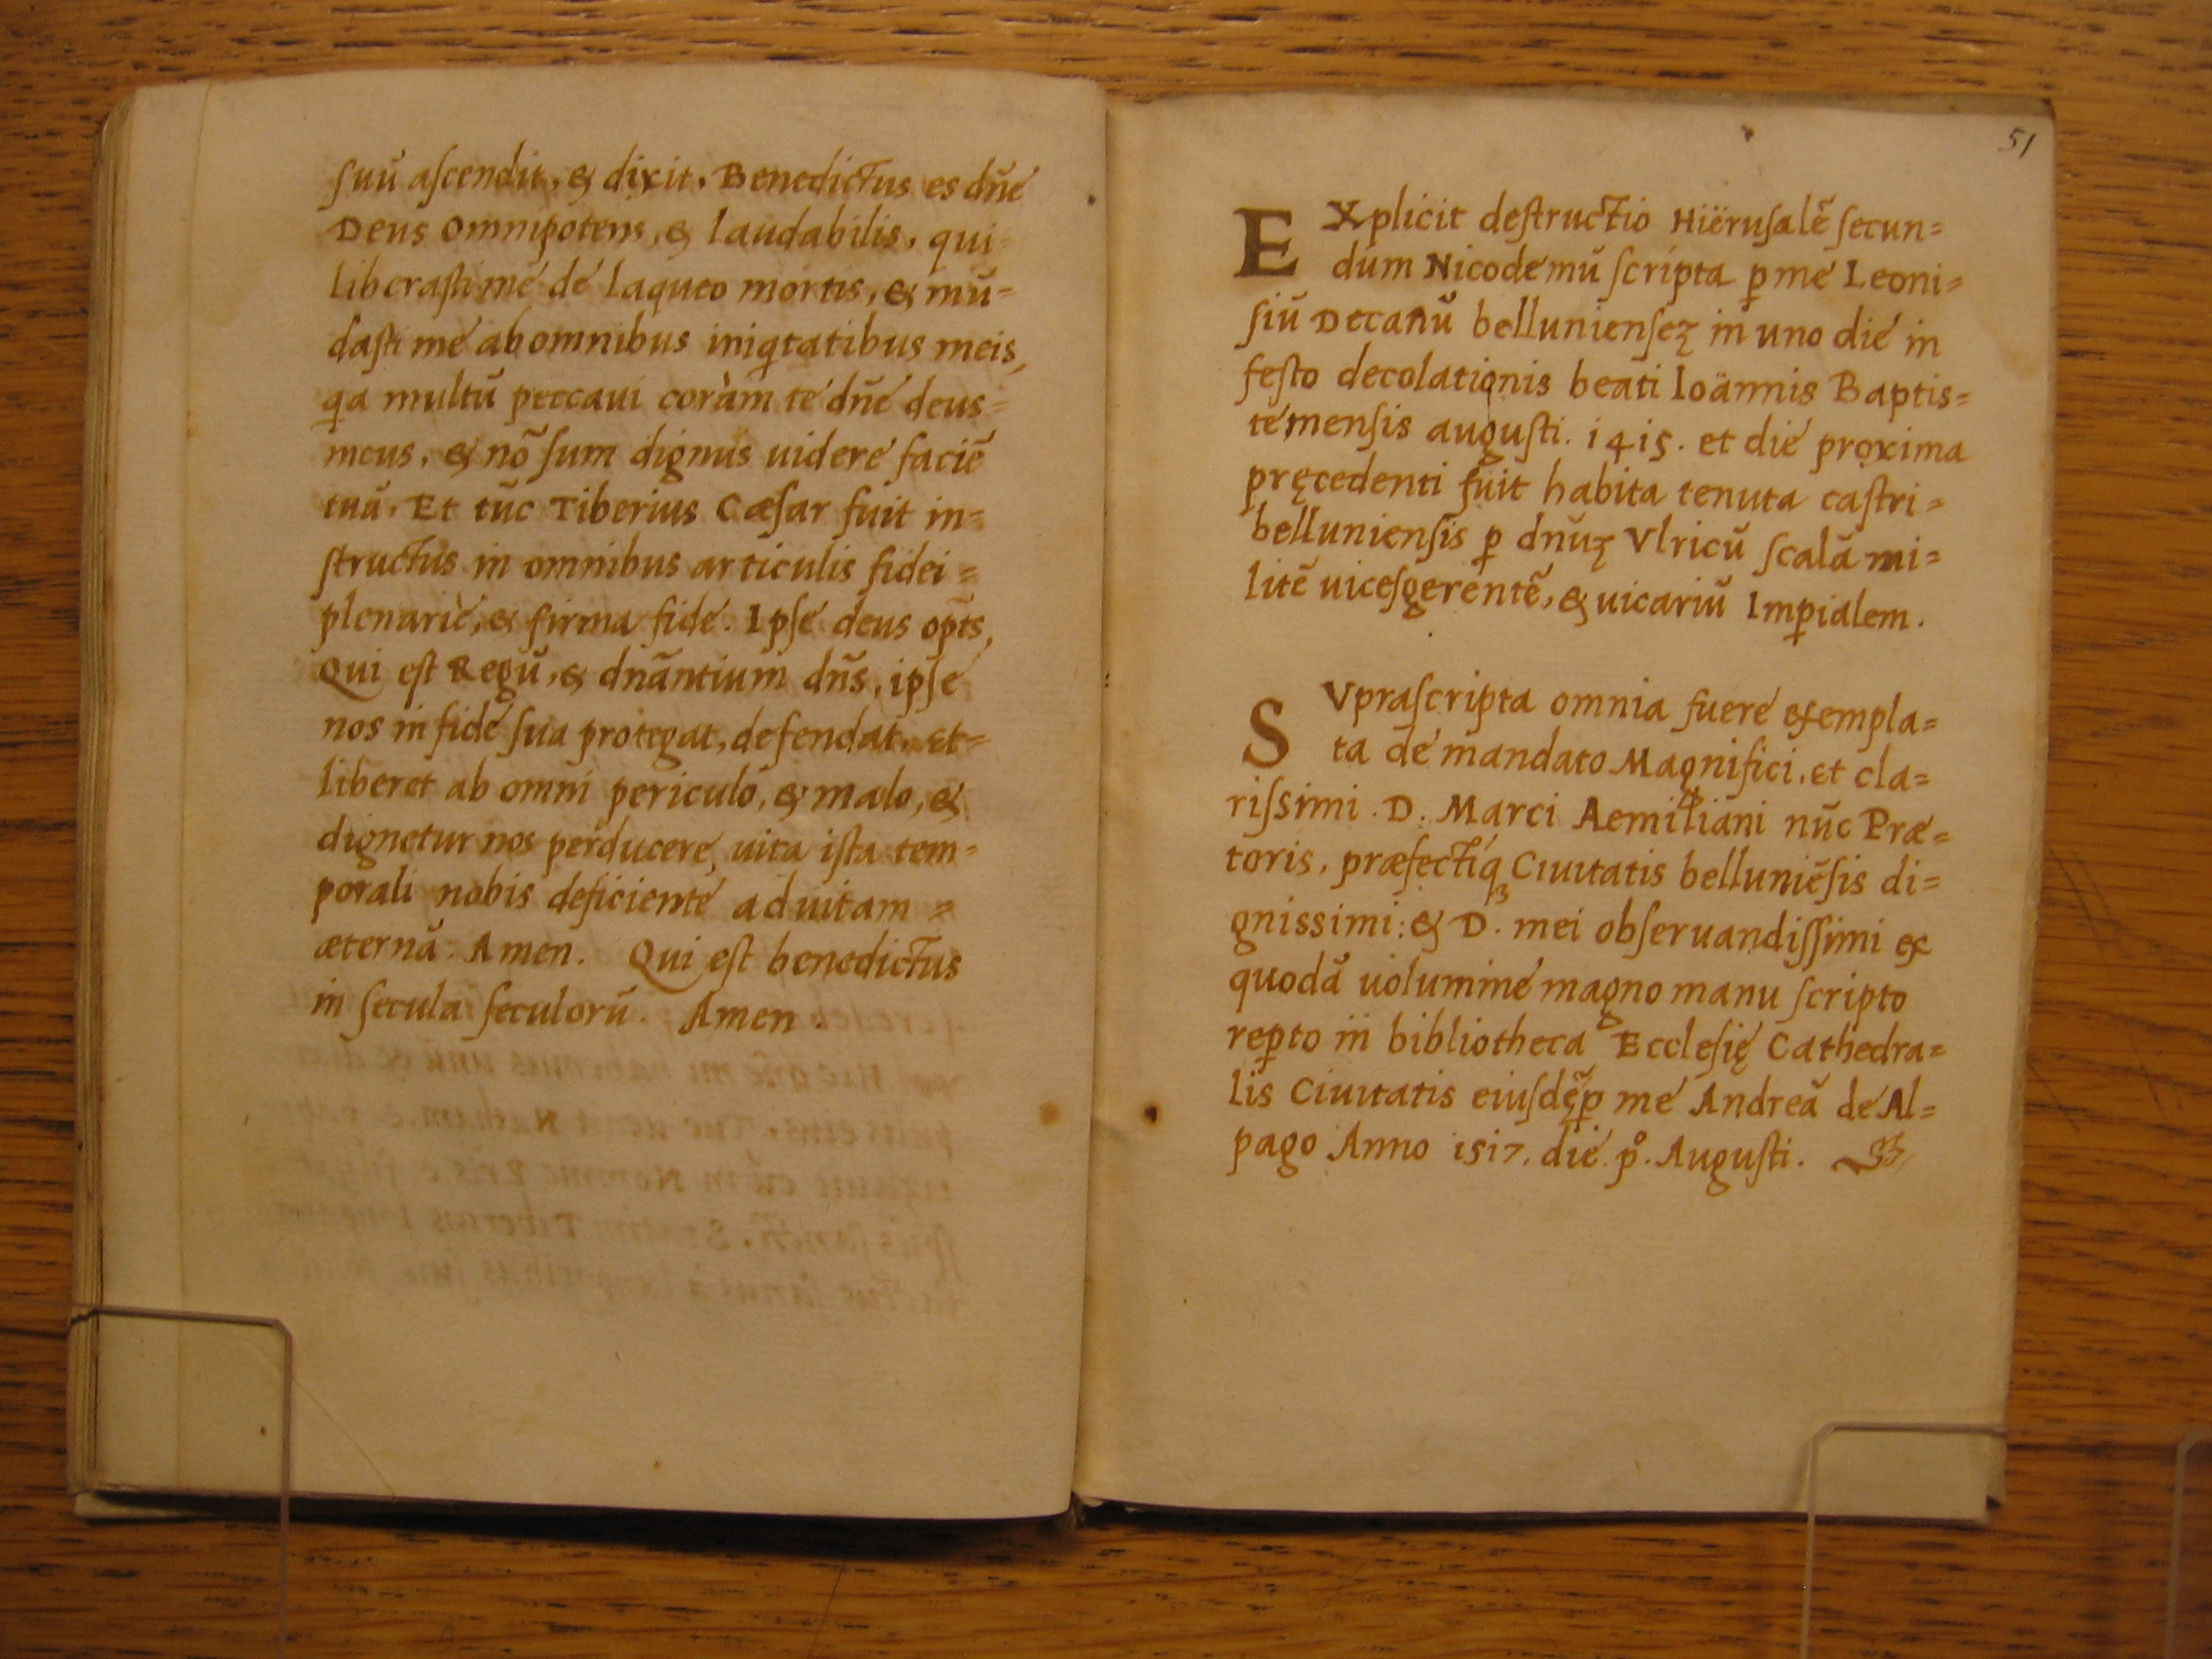 ſuū aſcendit, & dixit. Benedictus es dn̄e
Deus Omnipotens, & laudabilis, qui-
liberaſti me de laqueo mortis, & mū=
daſti me ab omnibus iniqtatibus meis,
qa multū peccaui coràm te dn̄e deus=
meus, & nō ſum dignus uidere faciē
tuā. Et tūc Tiberius Cæſar fuit in=
ſtructus in omnibus articulis fidei =
plenariè, & firma fide. Ipſe deus op̄ts,
Qui eſt Regū, & dnāntium dn̄s, ipſe
nos in fide ſua protegat, defendat, et=
liberet ab omni periculo, & malo, &
dignetur nos perducere, uita iſta tem=
porali nobis deficiente ad uitam =
æternā. Amen. Qui eſt benedictus
in ſecula ſeculorū. Amen.
51
EXplicit deſtructio Hiëruſalē ſecun=
dum Nicodemū ſcripta ꝑ me Leoni=
ſiū Decanū bellunienſeꝫ in uno die in
feſto decolationis beati Ioännis Baptis=
te menſis auguſti. 1415. et die proxima
pręcedenti fuit habita tenuta caſtri=
bellunienſis ꝑ dnūꝫ Vlricū ſcalā mi=
litē uiceſgerentē, & uicariū Imꝑialem.
SVpraſcripta omnia fuere exempla=
ta de mandato Magnifici, et cla=
riſsimi .D. Marci Aemiliani nūc Præ=
toris, præfectiqꝫ Ciuitatis belluniēſis di=
gnissimi: & D. mei obſeruandiſſimi ex
quodā uolumine magno manu ſcripto
reꝑto in bibliotheca Eccleſię Cathedra=
lis Ciuitatis eiuſdē ꝑ me Andreā de Al=
pago Anno 1517. die pº. Auguſti.